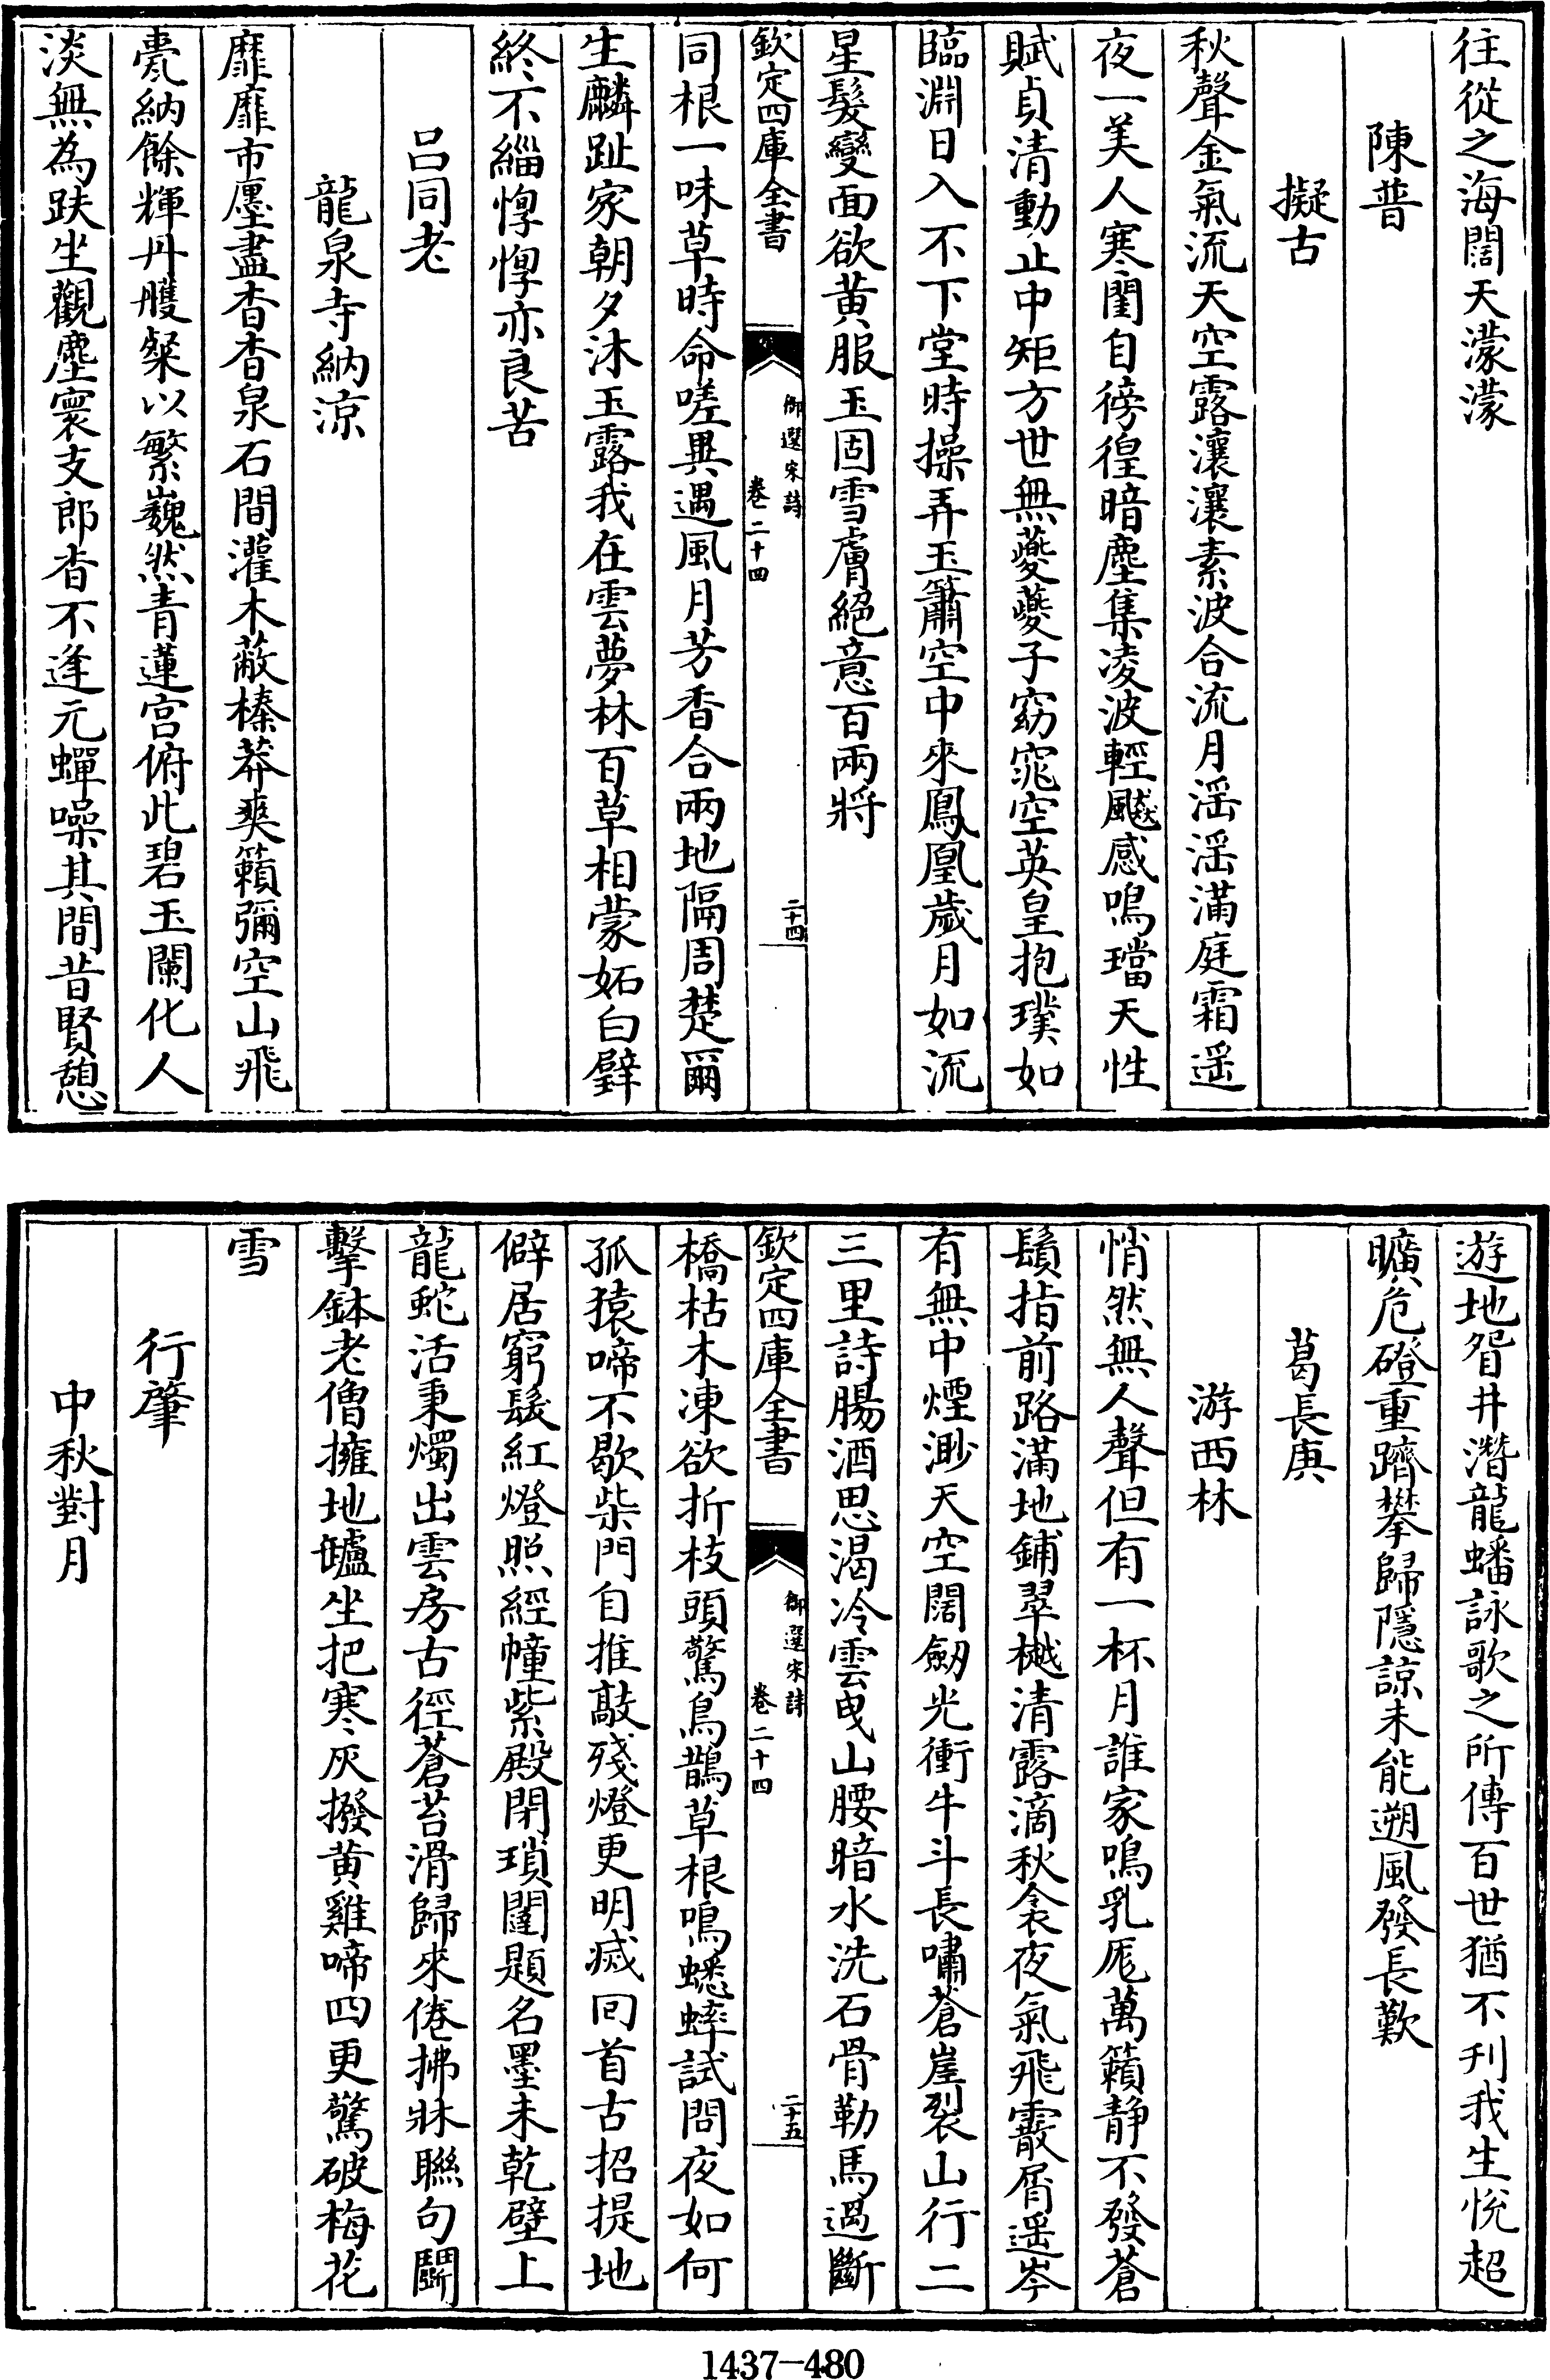 往從之海闊天濛濛
陳普
擬古
秋聲金氣流天空露瀼瀼素波合流月滛滛滿庭霜遥
夜一美人寒閨自徬徨暗塵集凌波輕飈感鳴璫天性
賦貞清動止中矩方世無夔夔子窈窕空英皇抱璞如
臨淵日入不下堂時操弄玉簫空中來鳳凰歲月如流
星髮變面欲黄服玉固雪膚絕意百兩將
欽定四庫全書
御選宋詩
卷二十四
二十四
同根一味草時命嗟異遇風月芳香合兩地隔周楚爾
生麟趾家朝夕沐玉露我在雲夢林百草相蒙妬白璧
終不緇悙悙亦良苦
吕同老
龍泉寺納涼
靡靡市廛盡杳杳泉石間灌木蔽榛莽爽籟彌空山飛
甍納餘輝丹雘粲以繁巍然青蓮宫俯此碧玉闌化人
淡無為趺坐觀塵寰支郎杳不逢元蟬噪其間昔賢憩
遊地眢井潛龍蟠詠歌之所傳百世猶不刋我生悅超
曠危磴重躋攀歸隱諒未能遡風發長歎
葛長庚
游西林
悄然無人聲但有一杯月誰家鳴乳彪萬籟静不發蒼
鬚指前路滿地鋪翠樾清露滴秋衾夜氣飛霰屑遥岑
有無中煙渺天空闊劒光衝牛斗長嘯蒼崖裂山行二
三里詩腸酒思渴冷雲曳山腰暗水洗石骨勒馬過斷
欽定四庫全書
御選宋詩
卷二十四
二十五
橋枯木凍欲折枝頭驚鳥鵲草根鳴蟋蟀試問夜如何
孤猿啼不歇柴門自推敲殘燈更明滅回首古招提地
僻居窮髮紅燈照經幢紫殿閉瑣闥題名墨未乾壁上
龍蛇活秉燭出雲房古徑蒼苔滑歸來倦拂牀聯句鬭
擊鉢老僧擁地罏坐把寒灰撥黄雞啼四更驚破梅花
雪
行肇
中秋對月
1437—480